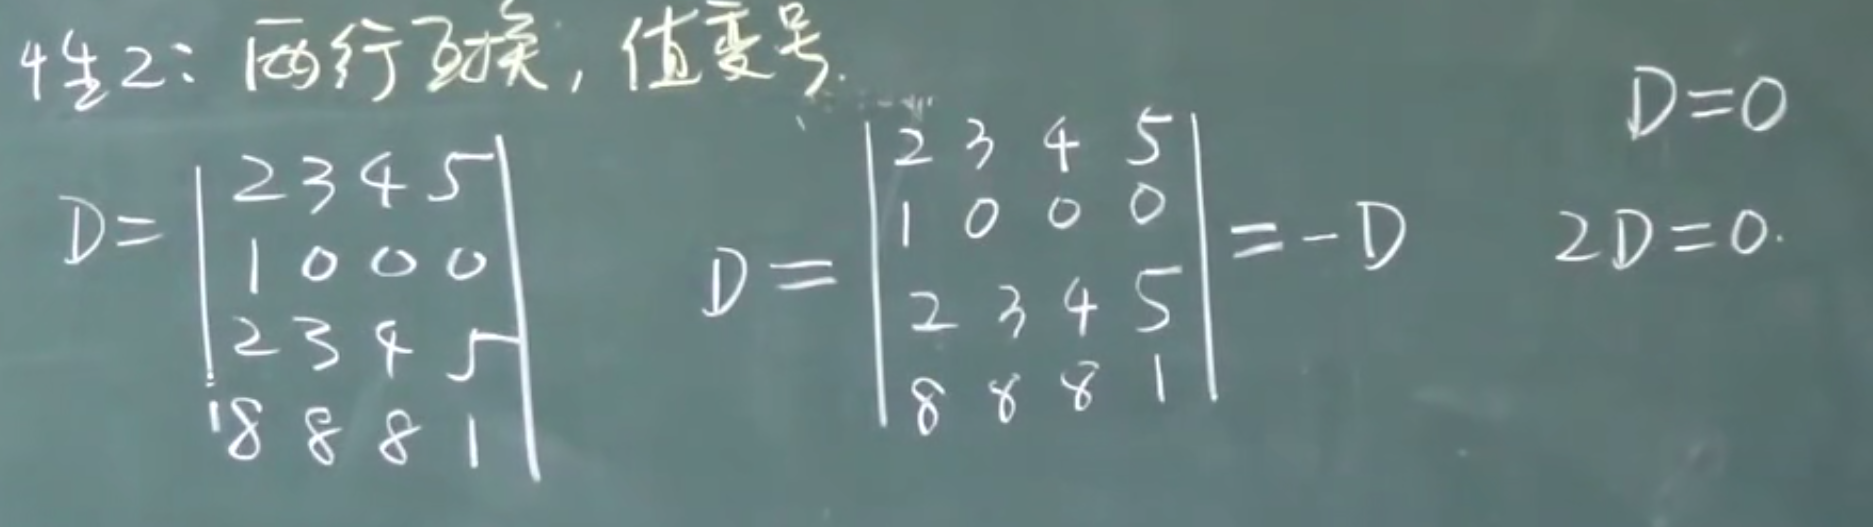 性2: 两行互换, 值变号.
D=0
D= | 2 3 4 5 |
| 1 0 0 0 |
| 2 3 4 5 |
| 8 8 8 1 |
D= | 2 3 4 5 | =-D
| 1 0 0 0 |
| 2 3 4 5 |
| 8 8 8 1 |
2D=0.